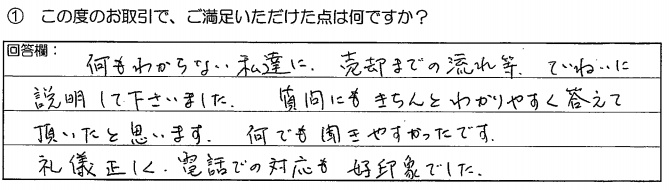 ① この度のお取引で、ご満足いただけた点は何ですか？
回答欄：
何もわからない私達に、売却までの流れ等、ていねいに
説明して下さいました。 質問にもきちんとわかりやすく答えて
頂いたと思います。 何でも聞きやすかったです。
礼儀正しく、電話での対応も 好印象でした。